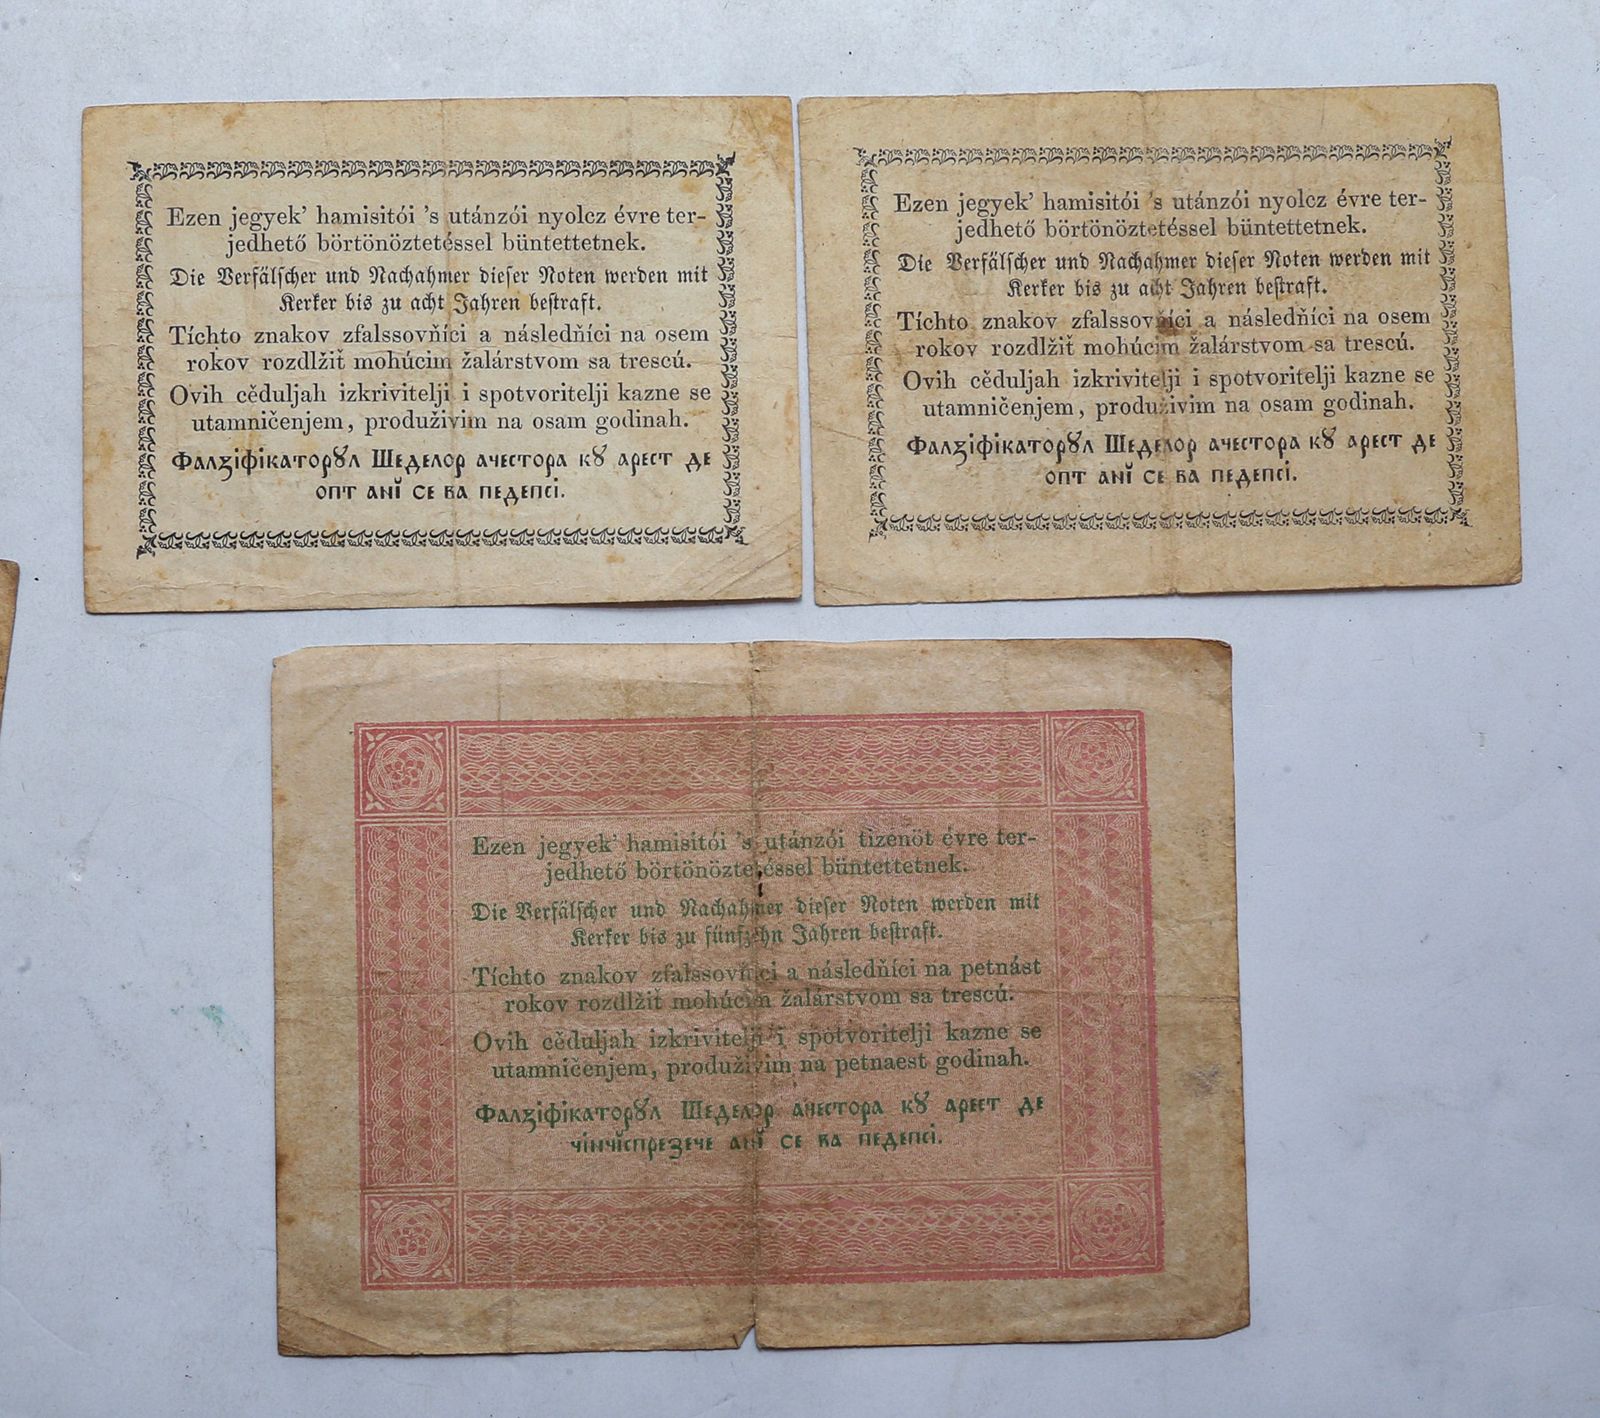 Ezen jegyek’ hamisitói ’s utánzói nyolcz évre ter-
jedhető börtönöztetéssel büntettetnek.
Die Verfälſcher und Nachahmer dieſer Noten werden mit
Kerker bis zu acht Jahren beſtraft.
Tíchto znakov zfalssovňíci a následňíci na osem
rokov rozdlžiť mohúcim žalárstvom sa trescú.
Ovih cěduljah izkrivitelji i spotvoritelji kazne se
utamničenjem, produživim na osam godinah.
Фалꙁіфікаторꙋл Шеделор ачестора кꙋ арест де
опт анĭ се ва педепсі.
Ezen jegyek’ hamisitói ’s utánzói nyolcz évre ter-
jedhető börtönöztetéssel büntettetnek.
Die Verfälſcher und Nachahmer dieſer Noten werden mit
Kerker bis zu acht Jahren beſtraft.
Tíchto znakov zfalssovňíci a následňíci na osem
rokov rozdlžiť mohúcim žalárstvom sa trescú.
Ovih cěduljah izkrivitelji i spotvoritelji kazne se
utamničenjem, produživim na osam godinah.
Фалꙁіфікаторꙋл Шеделор ачестора кꙋ арест де
опт анĭ се ва педепсі.
Ezen jegyek’ hamisitói ’s utánzói tizenöt évre ter-
jedhető börtönöztetéssel büntettetnek.
Die Verfälſcher und Nachahmer dieſer Noten werden mit
Kerker bis zu fünfzehn Jahren beſtraft.
Tíchto znakov zfalssovňíci a následňíci na petnást
rokov rozdlžiť mohúcim žalárstvom sa trescú.
Ovih cěduljah izkrivitelji i spotvoritelji kazne se
utamničenjem, produživim na petnaest godinah.
Фалꙁіфікаторꙋл Шеделор ачестора кꙋ арест де
чінчĭспреꙁече анĭ се ва педепсі.